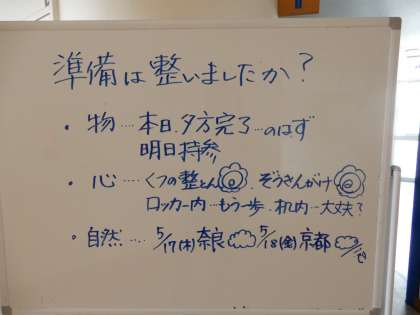 準備は整いましたか?
・物…本日.夕方完了…のはず
明日持参
・心…くつの整とん.ぞうきんがけ
ロッカー内…もう一歩.机内…大丈夫?
・自然…5/17(木)奈良 5/18(金)京都